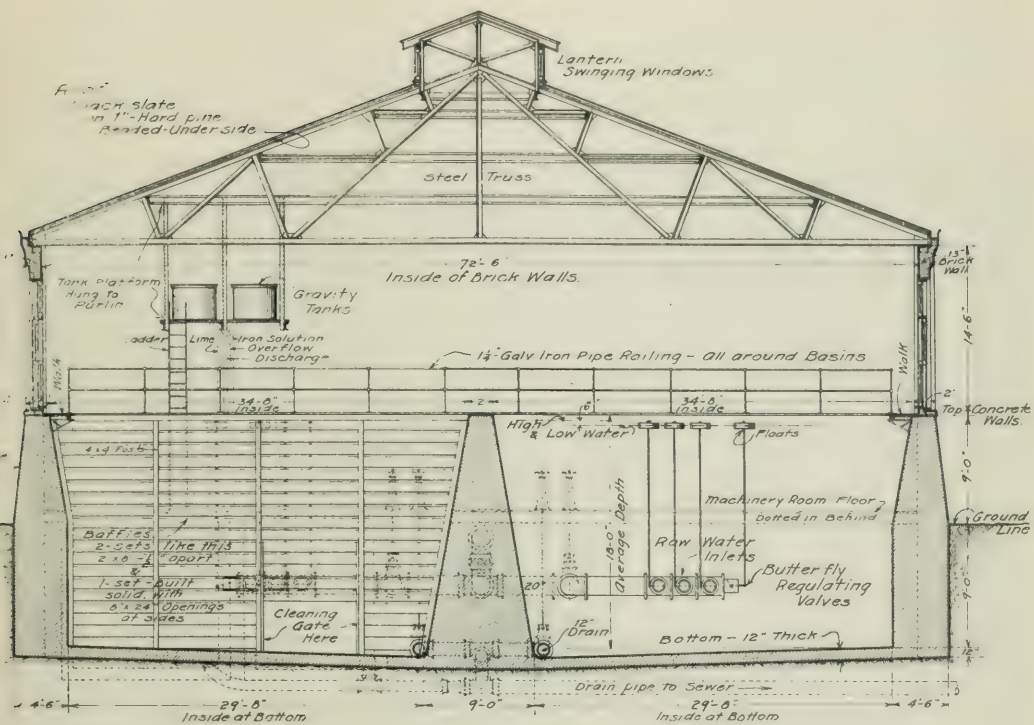 Lantern
Swinging Windows
slate
1"-Hard pine
Beaded-Underside
Steel Truss
72'-6"
Inside of Brick Walls.
13"
Brick
Wall
Tank Platform
Hung to
Purlin
Gravity
Tanks
Ladder
Lime
Iron Solution
Overflow
Discharge
14'-6"
1¼" Galv Iron Pipe Railing - all around Basins
Walk
Walk
34'-8"
inside
2'
34'-8"
inside
6"
2"
Top
Concrete
Walls.
High
&
Low Water
Floats
4x4 Posts
9'-0"
Machinery Room Floor
Dotted in Behind
Ground
Line
Baffles
2-Sets like this
2 x 8 - apart
&
1-set-Built
solid with
8"x 24" Openings
at sides
18'-0"
average Depth
Raw Water
Inlets
20"
Butterfly
Regulating
Valves
9'-0"
Cleaning
Gate
Here
12"
Drain
Bottom - 12" Thick
12"
Drain pipe to Sewer
4'-6"
29'-8"
Inside at Bottom
9'-0"
29'-8"
Inside at Bottom
4'-6"